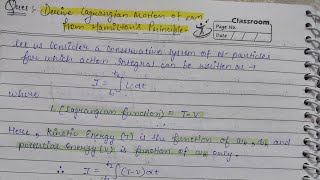 Ques: Derive Lagrangian Motion of eqn
from Hamilton's Principle.
Classroom
Page No.
Date
Let us consider a Conservative System of N- particles
for which action Integral can be written as →
J = ∫ L dt
where
L (Lagrangian function) = T-V
Here, Kinetic Energy (T) is the function of and
potential Energy (V) is function of only.
∴ J = ∫ (T-V) dt